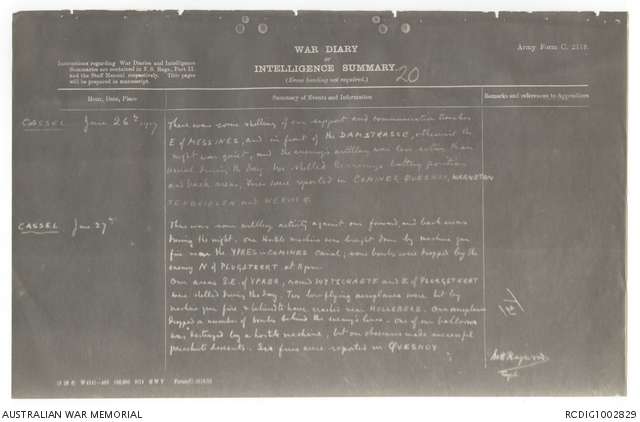 WAR DIARY
or
INTELLIGENCE SUMMARY.
(Erase heading not required.)
20
Army Form C. 2118.
Instructions regarding War Diaries and Intelligence
Summaries are contained in F. S. Regs., Part II.
and the Staff Manual respectively. This pages
will be prepared in manuscript.
Hour, Date, Place
Summary of Events and Information
Remarks and references to Appendices
CASSEL June 26th 1917
There was some shelling of our support and communication trenches
E of MESSINES, and in front of the DAMSTRASSE, otherwise the
night was quiet, and the enemy's artillery was less active than
usual during the day. We shelled the enemy's battery positions
and back areas, fires were reported in COMINES, QUESNOY, WARNETON
TENBRIELEN and WERVICQ.
CASSEL June 27th
There was some artillery activity against our forward and back areas
during the night. One Hostile machine was brought down by machine gun
fire near the YPRES-COMINES Canal; some bombs were dropped by the
enemy N of PLUGSTREET at 8pm.
Our areas S.E. of YPRES, round WYTSCHAETE and E of PLUGSTREET
were shelled during the day. Two low flying aeroplanes were hit by
machine gun fire & believed to have crashed near HOLLEBEKE. Our aeroplanes
dropped a number of bombs behind the enemy's lines - One of our balloons
was destroyed by a hostile machine, but our observers made successful
parachute descents. Six fires were reported in QUESNOY
Capt
AUSTRALIAN WAR MEMORIAL
RCDIG1002829